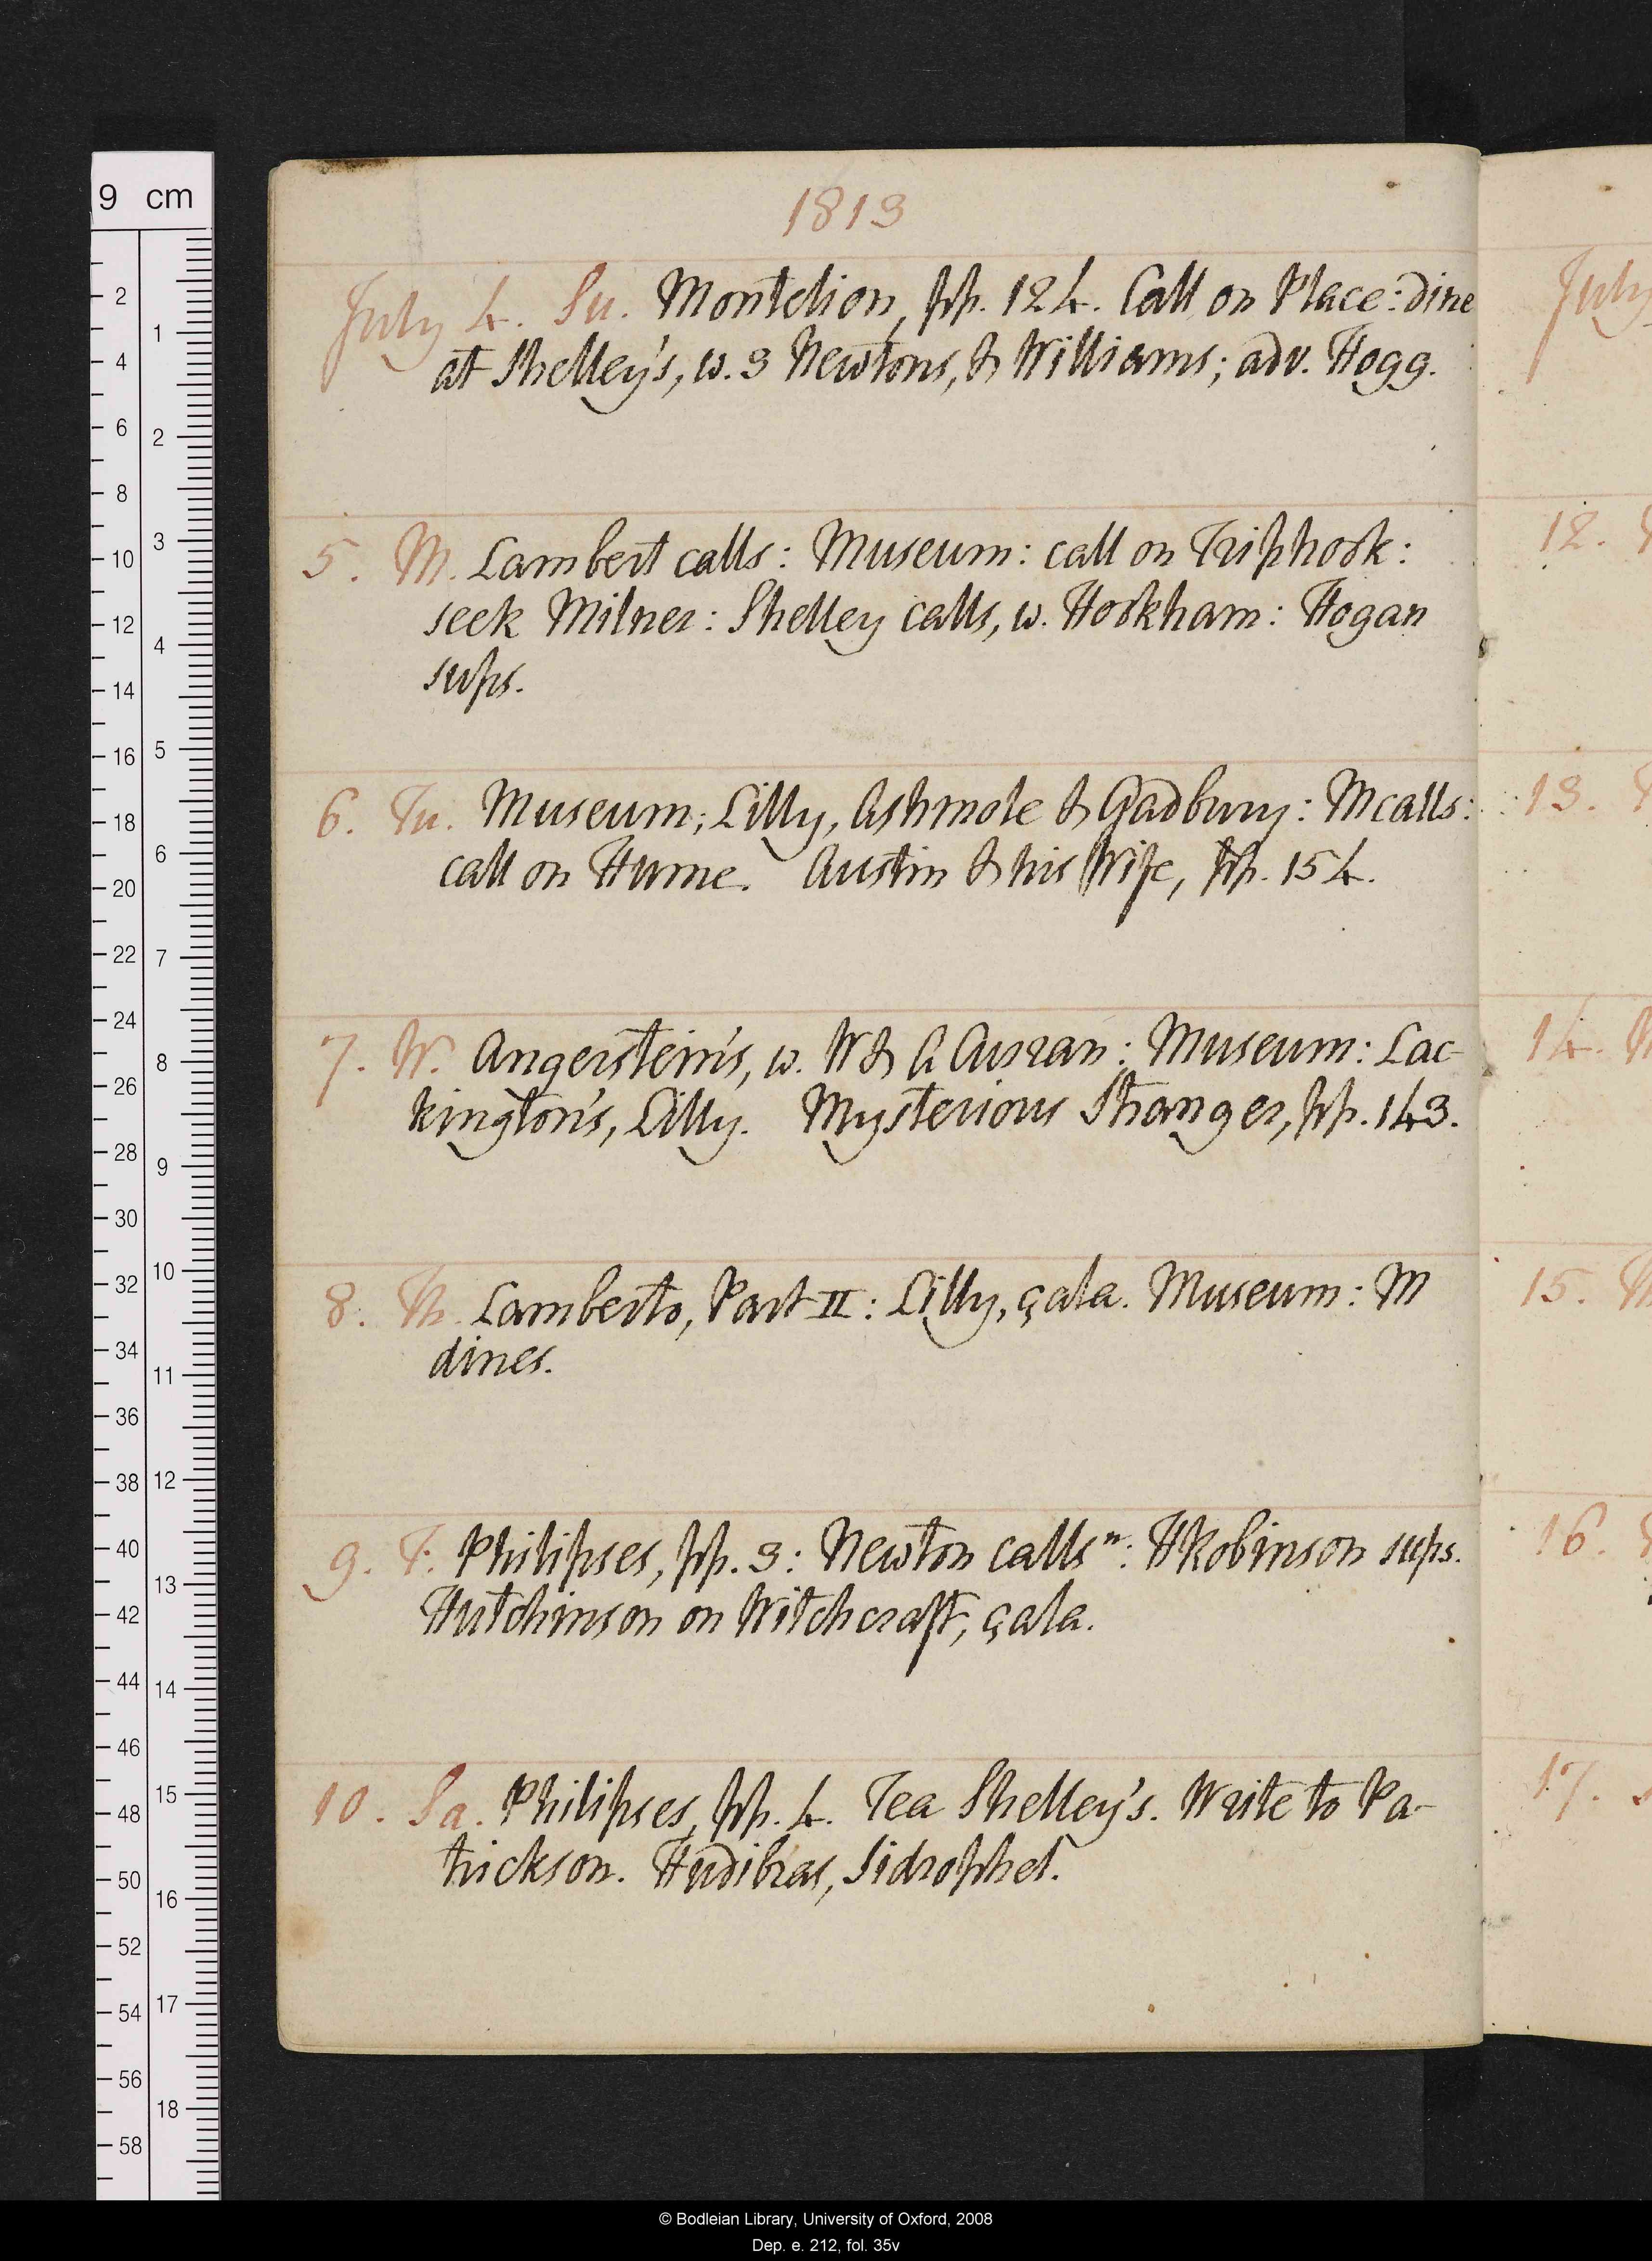 1813
July 4. Su. Montelion, pp. 124. Call on Place: dine
at Shelley's, w. 3 Newtons, & Williams; adv. Hogg.
5. M. Lambert calls: Museum: call on Triphook:
seek Milner: Shelley calls, w. Hookham: Hogan
sups.
6. Tu. Museum; Lilly, Ashmole & Gadbury: M calls:
call on Hume. Austin & his Wife, pp. 154.
7. W. Angerstein's, w. W & A Curran: Museum: Lac-
kington's, Lilly. Mysterious Stranger, pp. 143.
8. Th. Lamberto, Part II: Lilly, çala. Museum: M
dines.
9. F. Philipses, pp. 3: Newton calls ⁿ: H Robinson sups.
Hutchinson on Witchcraft, çala.
10. Sa. Philipses, pp. 4. Tea Shelley's. Write to Pa-
trickson. Hudibras, Sidrophel.
July
12.
13.
14.
15.
16.
17.
9 cm
2
4
6
8
10
12
14
16
18
20
22
24
26
28
30
32
34
36
38
40
42
44
46
48
50
52
54
56
58
1
2
3
4
5
6
7
8
9
10
11
12
13
14
15
16
17
18
© Bodleian Library, University of Oxford, 2008
Dep. e. 212, fol. 35v